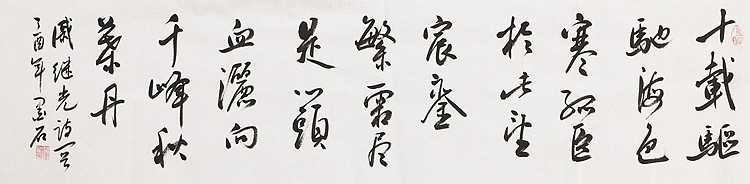 十載驅
馳海色
寒孤臣
於此望
宸銮
繁霜尽
是心頭
血灑向
千峰秋
葉丹
戚继光诗一首
丁酉年墨石